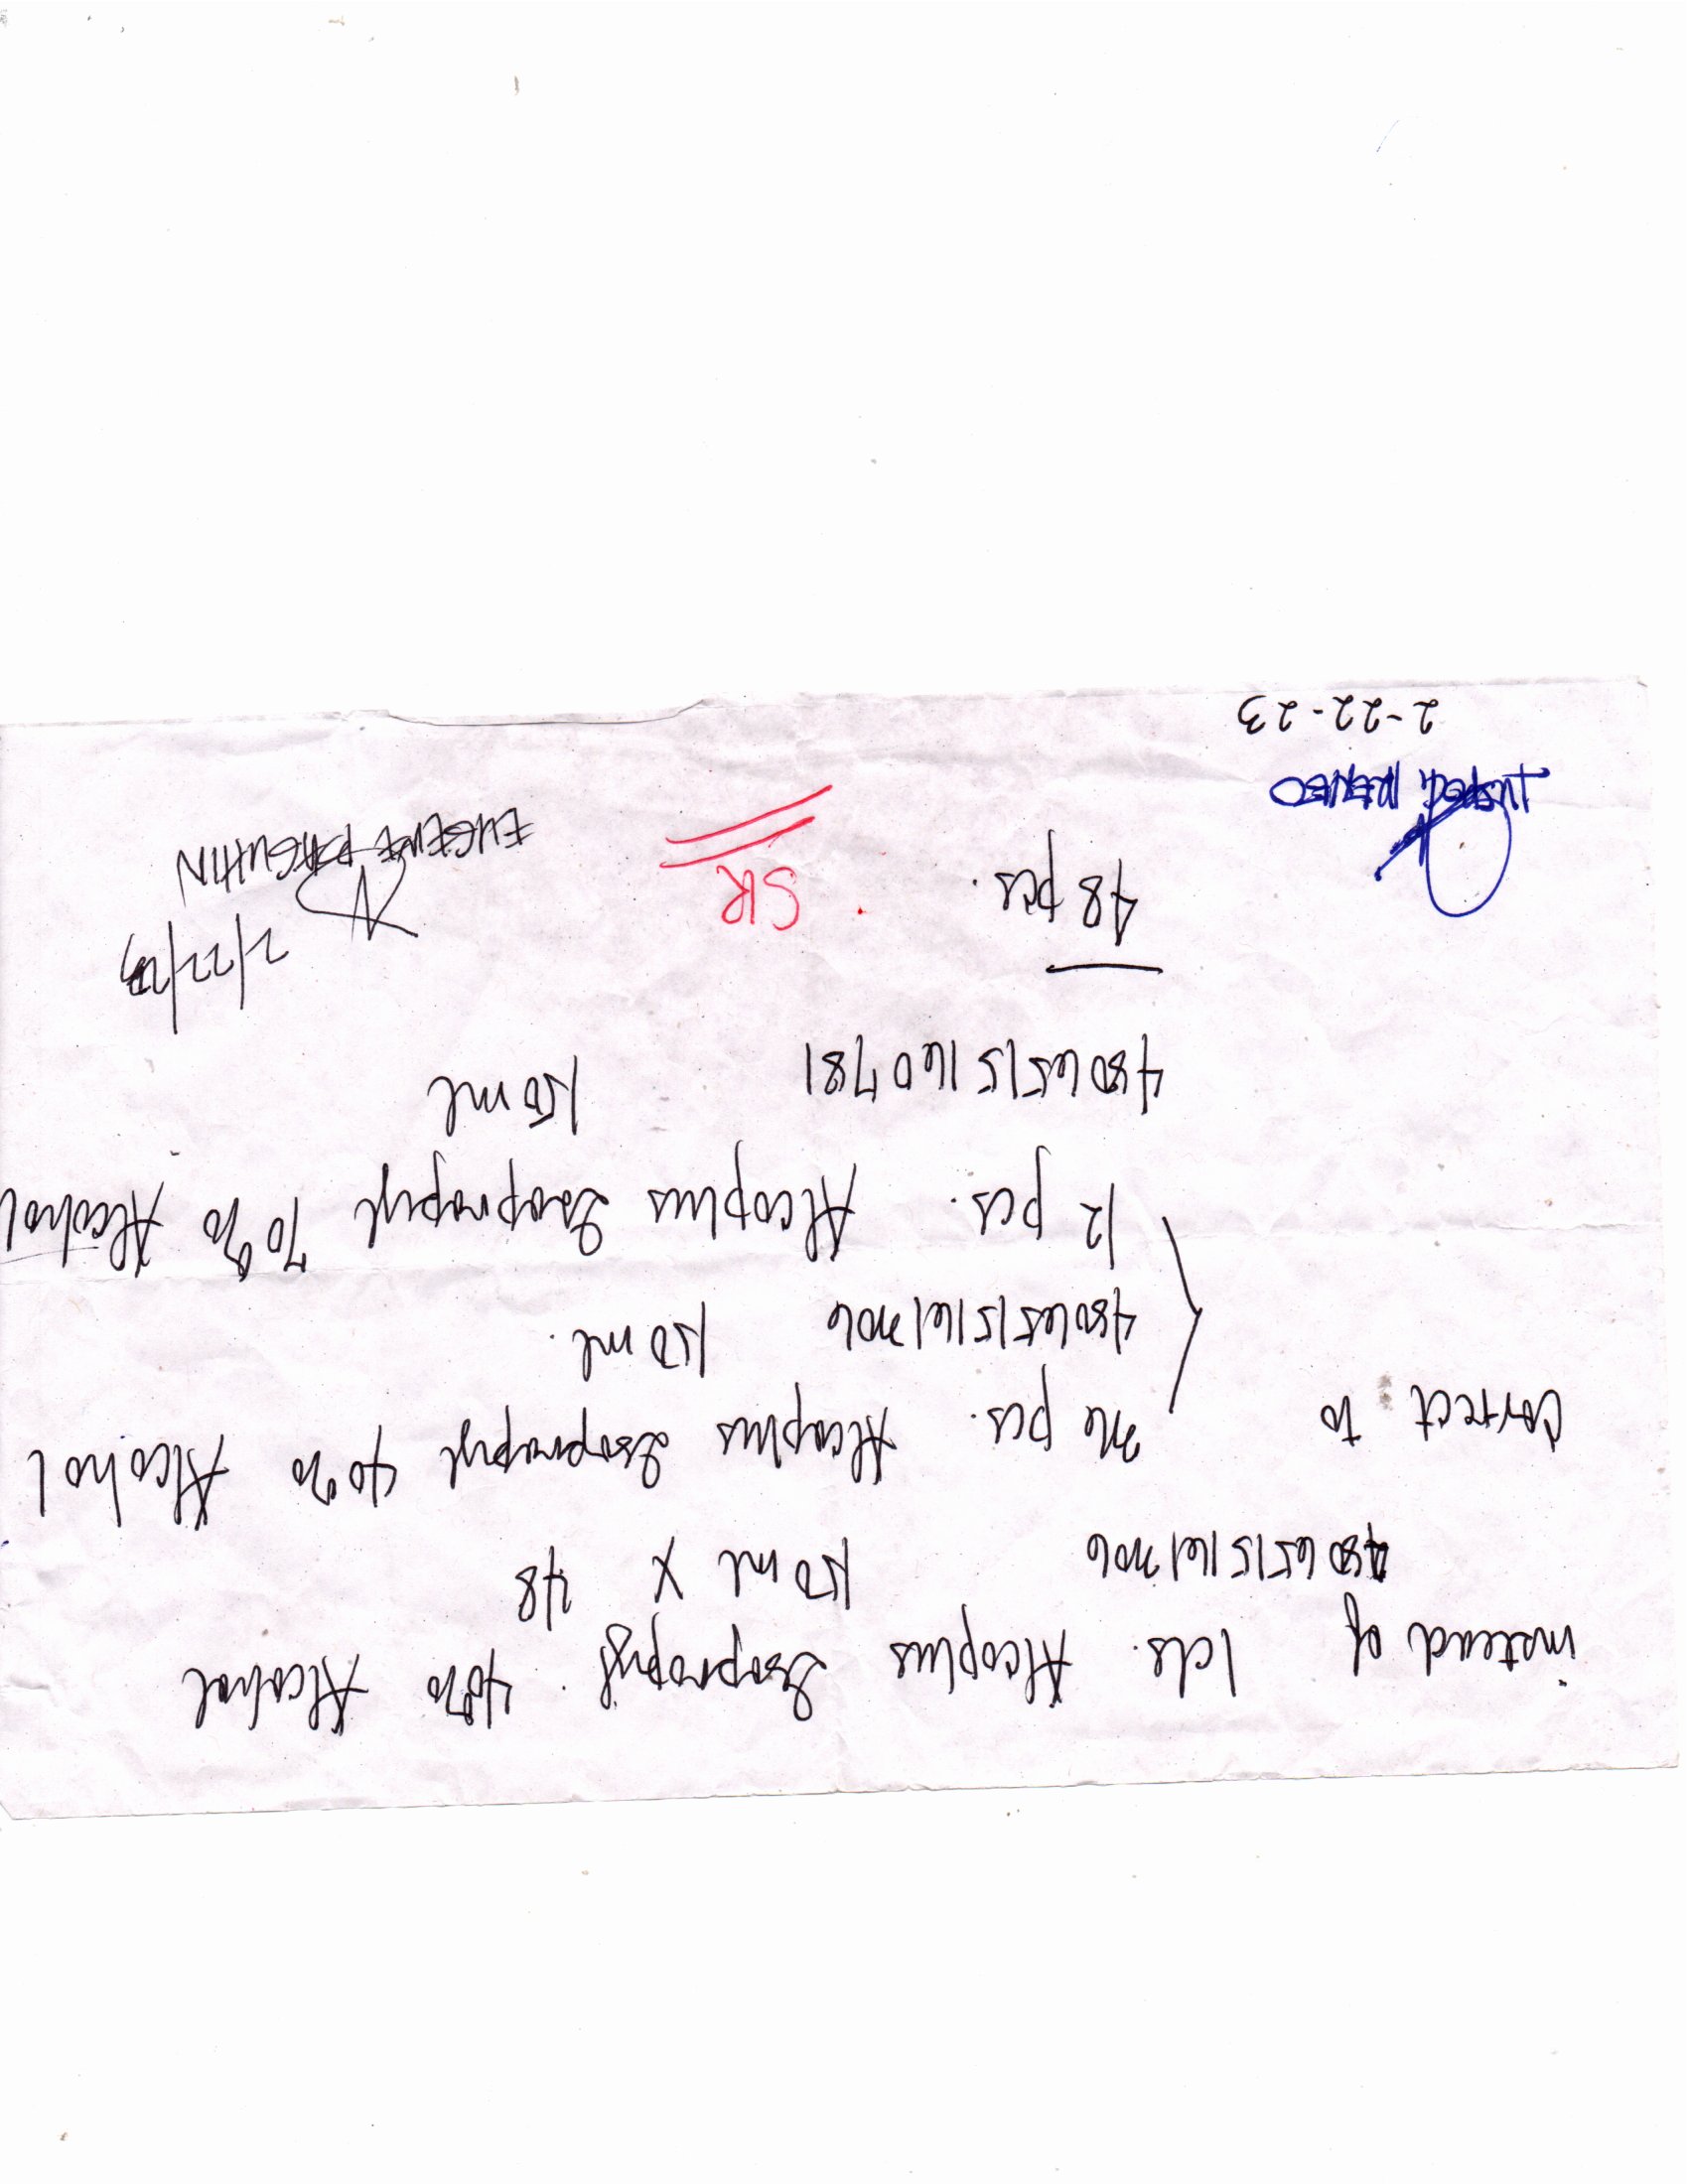 instead of 1cs. Alcoplus Isopropyl 40% Alcohol
4806515161306 150 ml x 48
Correct to 36 pcs. Alcoplus Isopropyl 40% Alcohol
4806515161306 150 ml.
12 pcs. Alcoplus Isopropyl 70% Alcohol
4806515160781 150 ml
48 pcs.
SR
2/22/23
EUGENE
2-22-23